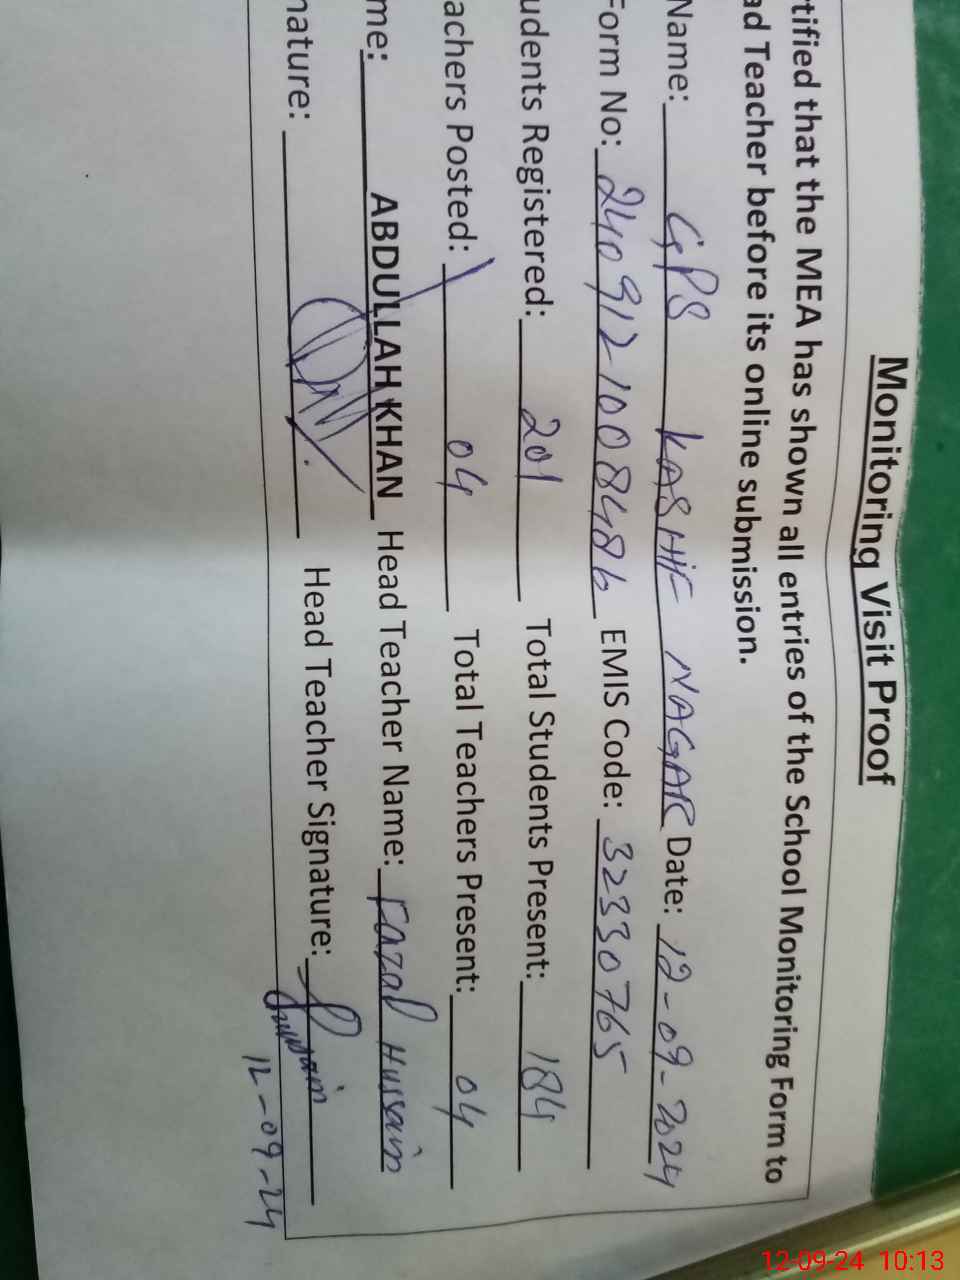 Monitoring Visit Proof
rtified that the MEA has shown all entries of the School Monitoring Form to
ad Teacher before its online submission.
Name: GPS KASHIF NAGAR Date: 12-09-2024
Form No: 240912100848b EMIS Code: 32330765
udents Registered: 201 Total Students Present: 184
achers Posted: 04 Total Teachers Present: 04
me: ABDULLAH KHAN Head Teacher Name: Fazal Hussain
nature: Head Teacher Signature: Hussain
12-09-24
12-09-24 10:13